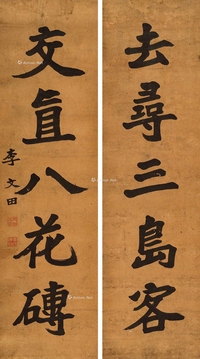 去尋三島客
交直八花磚
李文田